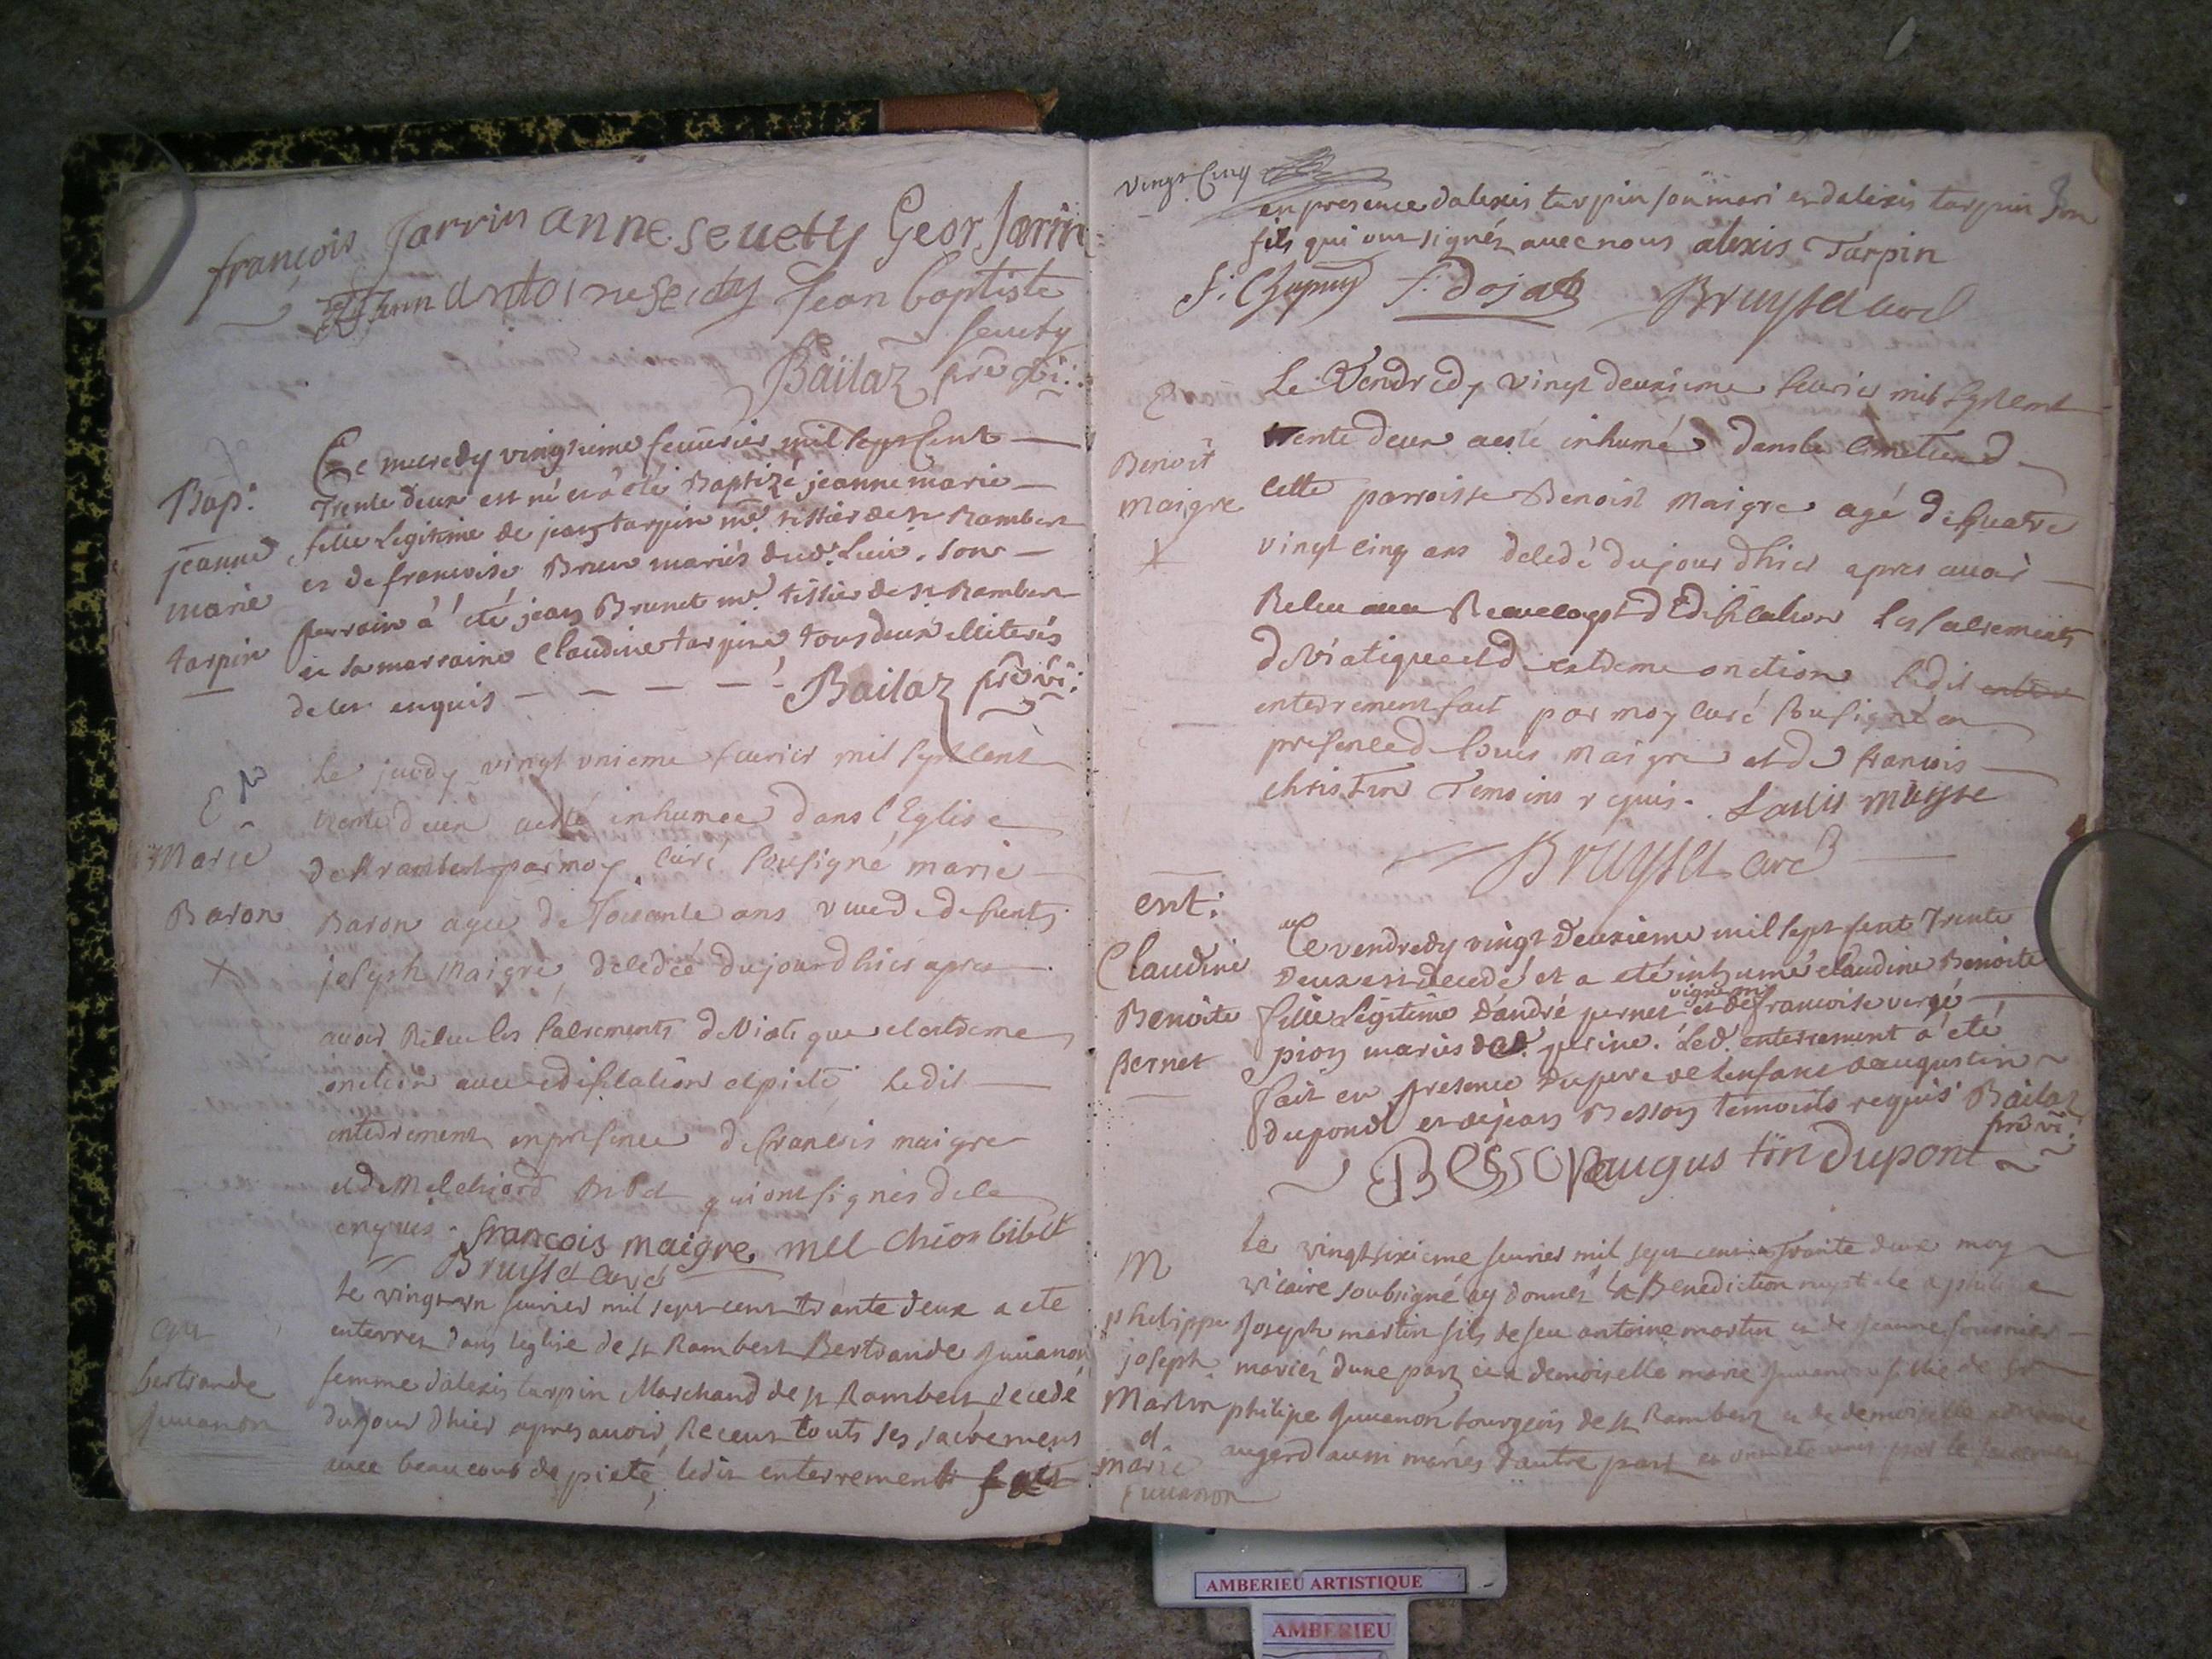 françois Jarrin anne sevety Geor Jarrin
antoine sevety Jean baptiste
sevety
Bailaz pre vi:
Bap:
jeanne
marie
tarpin
Ce mecredy vingtieme fevurier mil sept cent
Trente deux est né et à été Baptizé jeanne marie
fille legitime de jean tarpin me tissier de st Rambert
et de francoise Brun mariés dud. lieu. son
parrain à été jean Brunet me tissier de st Rambert
et sa marraine Claudine tarpin tous deux illiterés
de ce enquis Bailaz pre vi:
E
Marie
Baron
Le jeudy vingt unieme feurier mil sept cent
trente deux a esté inhumee dans l'Eglise
de st rambert par moy curé sousigné marie
Baron agee de soixante ans vuee de defunt
joseph Maigre, decedée du jour dhier apres
auoir Receu les sacrements de Viatique et extreme
onction avec edification et pieté Ledit
enterrement en presence de francois maigre
et de Melchiord Bibet qui ont signés de ce
enquis. françois maigre melchior bibet
Bruyset curé
ent
bertrande
Juuanon
le vingt un feurier mil sept cent trante deux a ete
enterree dans leglise de st Rambert Bertrande Juuanon
femme dalexis tarpin Marchand de st Rambert decedé
du jour dhier apres auoir Receus touts ses sacremens
auec beaucoub de pieté, ledit enterrement fait
vingt cinq
en presence dalexis tarpin son mari et dalexis tarpin son
fils qui ont signés avec nous alexis Tarpin
f. Chapuy f. dojat Bruyset curé
E
Benoit
Maigre
Le Vendredy vingt deuxieme feurier mil sept cent
trente deux a esté inhumé dans le cimetiere de
cette parroisse Benoist Maigre agé de quatre
vingt cinq ans decedé du jour dhier apres auoir
Receu avec Beaucoupt dEdification les sacrements
de Viatique et dextreme onction ledit
enterrement fait par moy curé sousigné en
presence de Louis Maigre et de francois
christin Temoins requis. Louis maigre
Bruyset curé
ent:
Claudine
Benoite
Pernet
Ce vendredy vingt deuxieme mil sept cent Trente
deux est decedé et a eté inhumé claudine Benoite
fille legitime d'andré pernet vigneron et de francoise verg
pion mariés de . Led. enterrement a eté
fait en presence du pere de lenfant daugustin
dupond et de jean Besson temoins requis Bailaz
pre vi:
Besson augustin dupont
M
philippe
joseph
Martin
et
marie
Juuanon
Le vingt sixieme feurier mil sept cent trante deux moy
vicaire soubsigné ay donnés la Benediction nuptiale a philipe
Joseph martin fils de feu antoine martin et de jeanne fournier
mariés dune part et a demoiselle marie Juuanon fille de
philipe Juuanon bourgeois de st Rambert et de demoiselle
augerd aussi mariés dautre part
AMBERIEU ARTISTIQUE
AMBERIEU